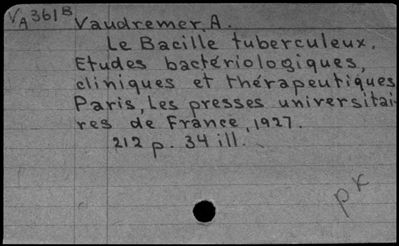 VA361B Vaudremer, A.
Le Bacille tuberculeux.
Etudes bactériologiques,
cliniques et thérapeutiques
Paris, Les presses universitai-
res de France, 1927.
212 p. 34 ill.
pk